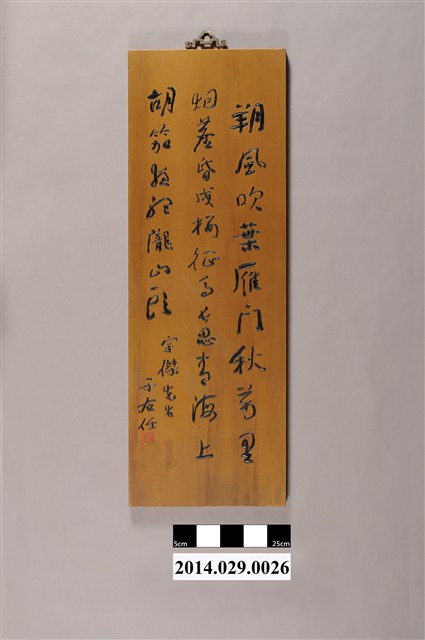 朔風吹葉雁門秋萬里
烟塵昏戍樓征馬長思青海上
胡笳夜聽隴山頭
宗傑先生
于右任
5cm
25cm
2014.029.0026